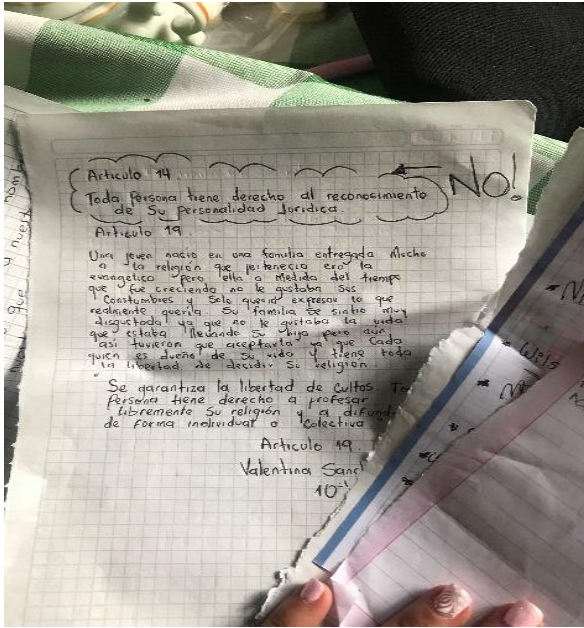 Articulo 14
NO!
Toda Persona tiene derecho al reconocimiento
de Su Personalidad Juridica.
Articulo 19.
Una joven nacio en una familia entregada Mucho
a la religión que pertenecio era la
evangelica pero ella a Medida del tiempo
que fue creciendo no le gustaba Sus
Constumbres y Solo queria expresar lo que
realmente queria. Su familia se sintio muy
disgustada ya que no le gustaba la vida
que estaba llevando Su hija pero aun
asi tuvieron que aceptarla ya que Cada
quien es dueño de Su vida y tiene toda
la libertad de decidir Su religion.
Se garantiza la libertad de cultos. To
Persona tiene derecho a profesar
libremente Su religión y a difund
de forma individual o Colectiva
Articulo 19.
Valentina Sanc
10-1